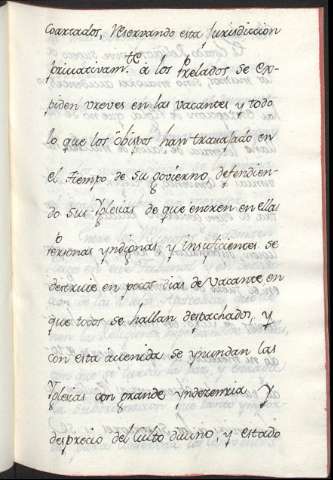 Coartados, Reservando esta Jurisdiccion
priuativam.te à los Prelados se ex-
piden vreves en las vacantes y todo
lo que los obispos han trauajado en
el tiempo de su govierno, defendien-
do sus Yglesias de que entren en ellas
Personas yndignas, y insuficientes se
destruie en pocos dias de Vacante en
que todos se hallan despachados, y
con esta auenida se ynundan las
Yglesias con grande yndezencia y
desprecio del Culto diuino, y estado